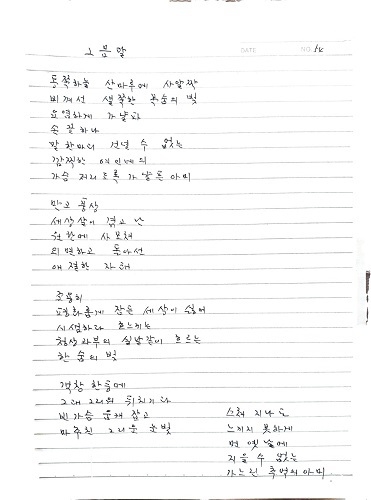 그믐달
DATE
NO.
동쪽하늘 산마루에 사알짝
비껴선 샐쭉한 목숨의 빛
요염하게 가냘파
손 잡하나
말 한마디 건넬 수 없는
깜찍한 여인네의
가슴 저리도록 가냘픈 아미
만고 풍상
세상살이 겪고 난
원한에 사모쳐
외면하고 돌아선
애절한 자태
조용히
평화롭게 잠든 세상이 싫어
시샘하다 흐느끼는
청상과부의 실낱같이 흐르는
한 숨의 빛
객창 한등에
그대 그리워 뒤척이다
빈가슴 움켜 잡고
마주친 그리운 눈빛
스쳐 지나도
느끼지 못하게
먼 옛날에
지울 수 없는
가느린 추억의 아미